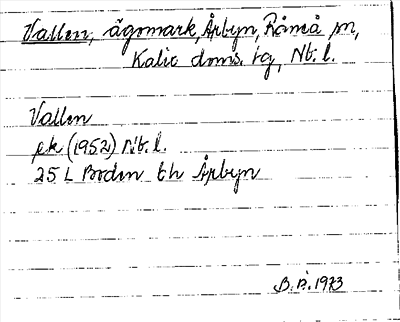 Vallen, ägomark, Årbyn, Råneå sn,
Kalix doms. tg, Nb. l.
Vallen
ek (1952) Nb. l.
25 L Boden bh Årbyn
B. P. 1973